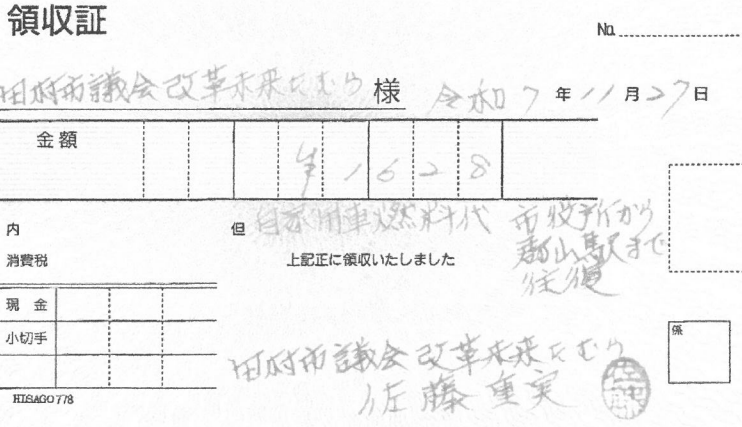 領収証
No.
田村市議会改革未来たむら 様 令和7年11月27日
金額 ¥1628
内 但 自家用車燃料代 市役所から
郡山駅まで
往復
消費税 上記正に領収いたしました
現金
小切手
田村市議会改革未来たむら
佐藤重実
係
HISAGO 778